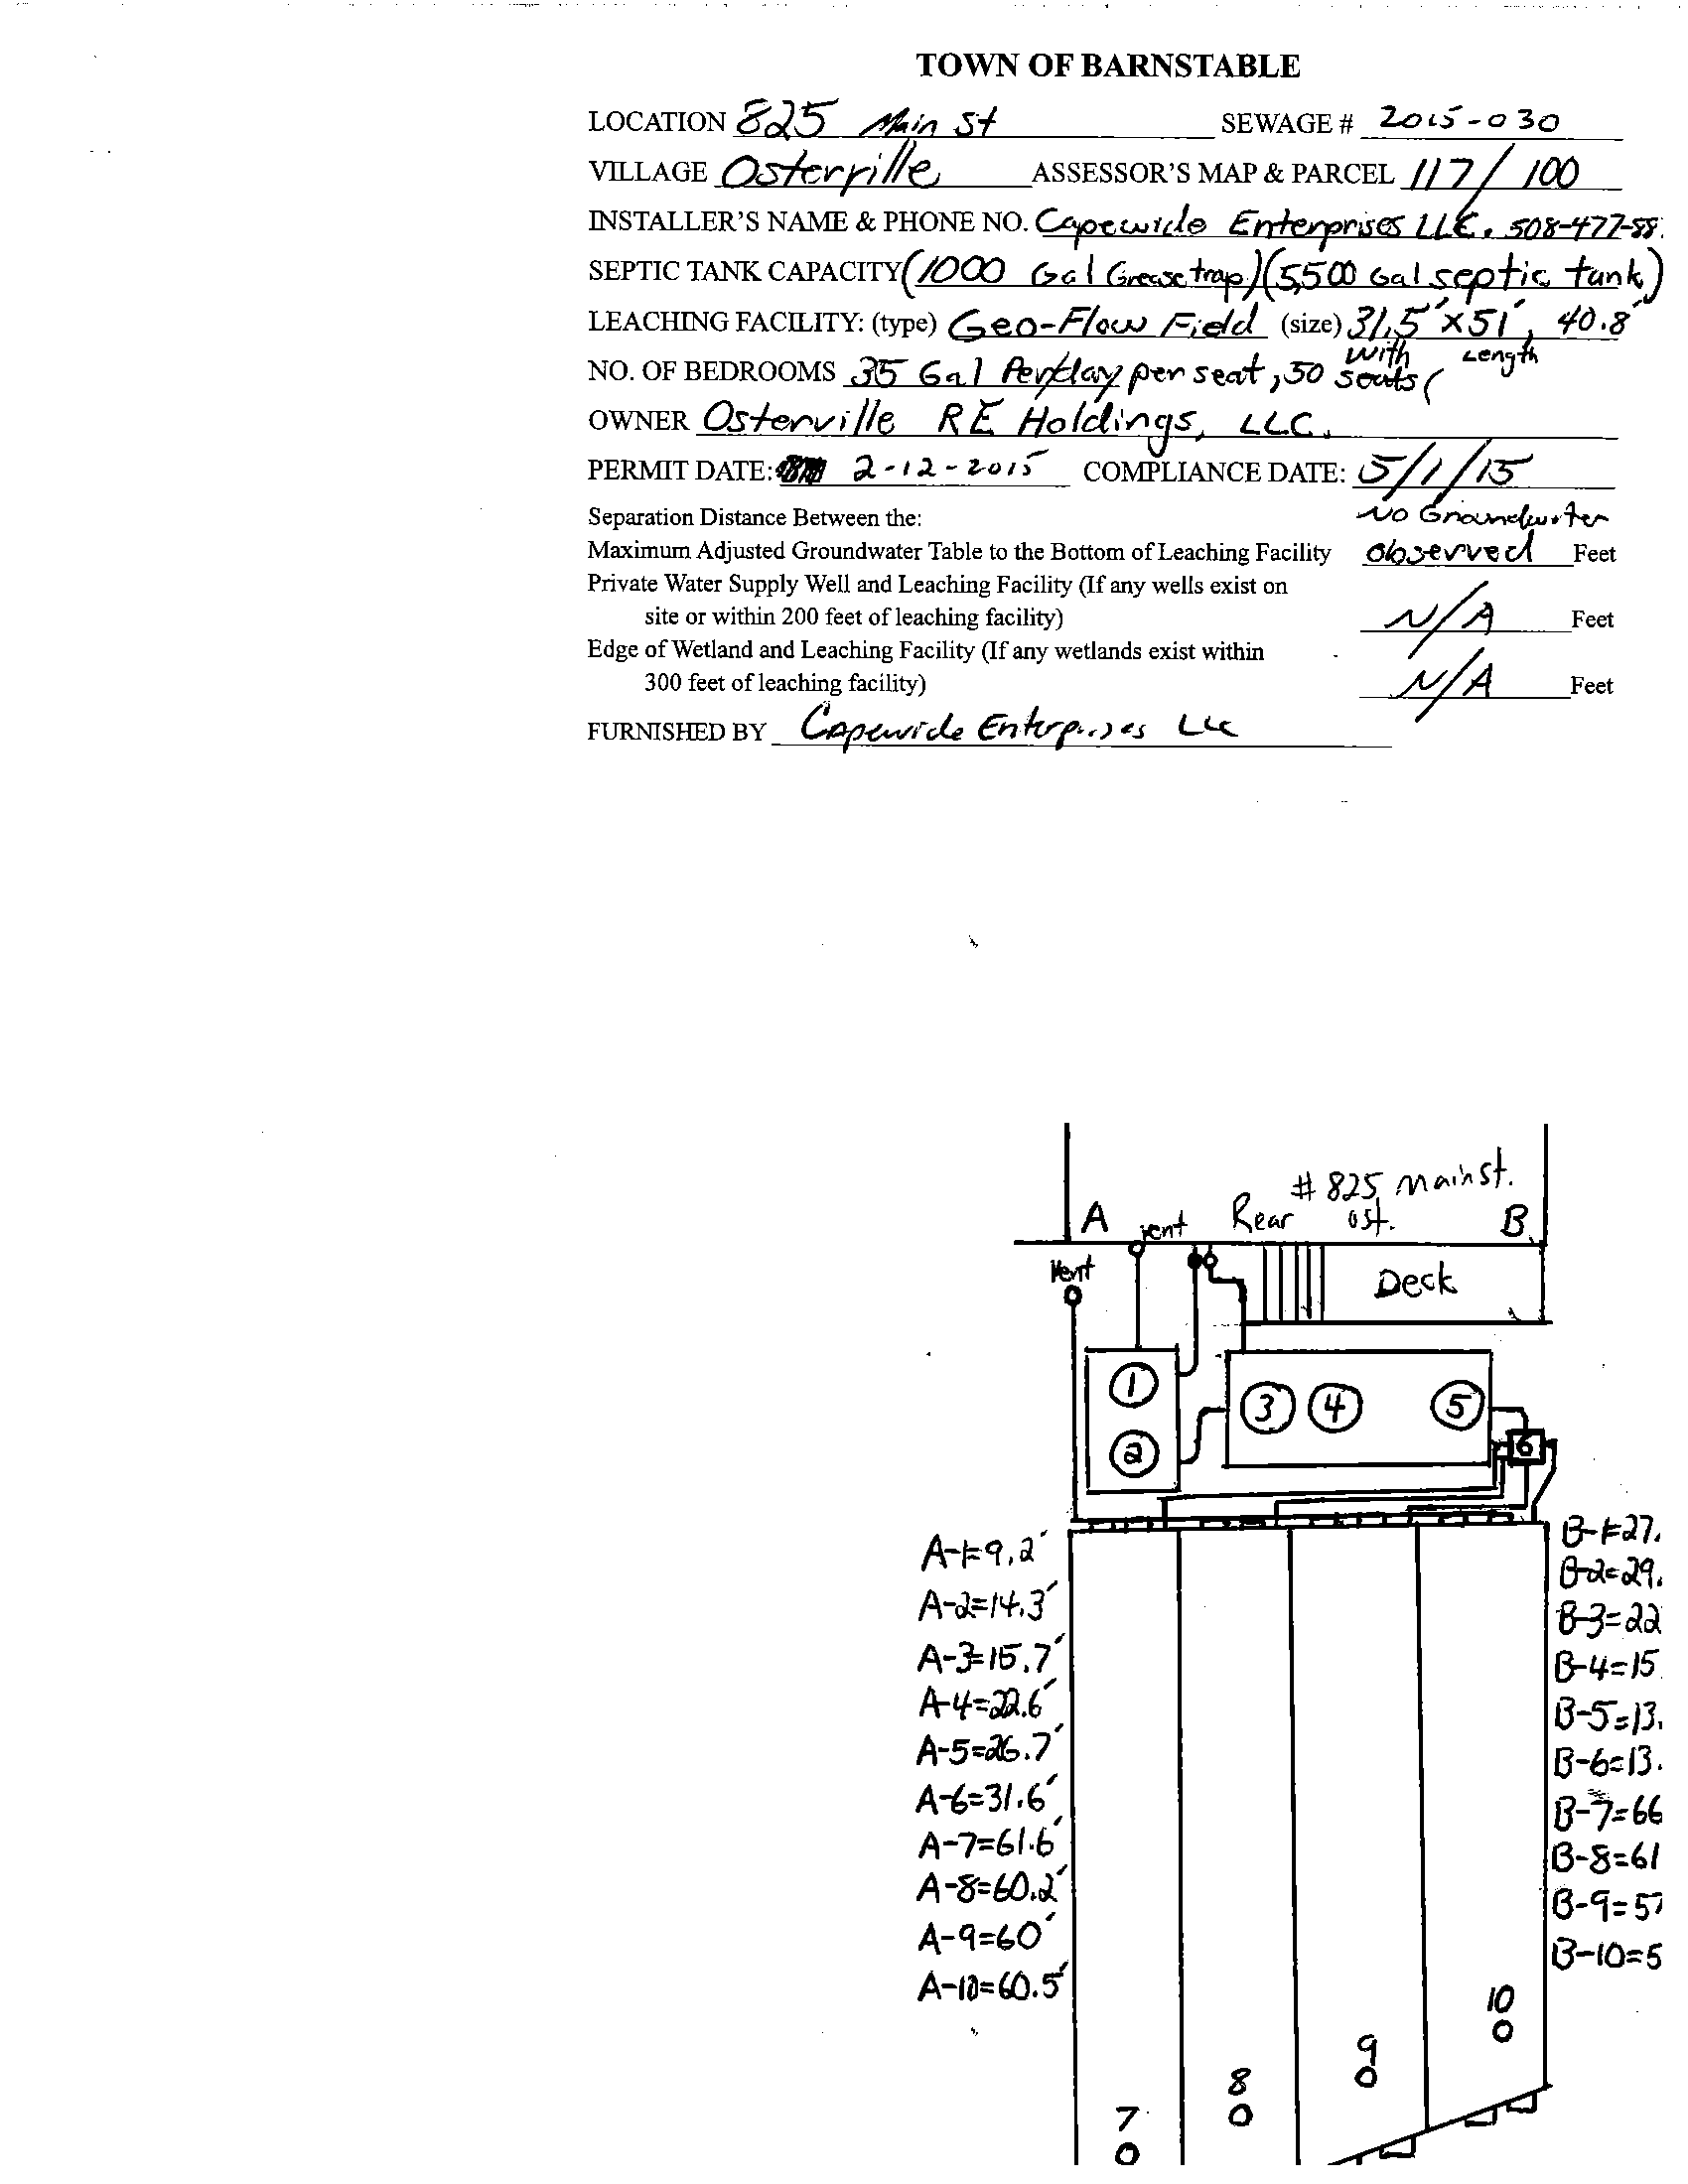 TOWN OF BARNSTABLE
LOCATION 825 Main St SEWAGE # 2015-030
VILLAGE Osterville ASSESSOR'S MAP & PARCEL 117/100
INSTALLER'S NAME & PHONE NO. Capewide Enterprises LLC. 508-477-88
SEPTIC TANK CAPACITY (1000 Gal Grease trap)(5,500 Gal septic tank)
LEACHING FACILITY: (type) Geo-Flow Field (size) 31.5' x 51', 40.8'
with Length
NO. OF BEDROOMS 35 Gal Per/day per seat, 50 seats (
OWNER Osterville RE Holdings, LLC.
PERMIT DATE: 2-12-2015 COMPLIANCE DATE: 5/1/15
Separation Distance Between the: No Groundwater
Maximum Adjusted Groundwater Table to the Bottom of Leaching Facility observed Feet
Private Water Supply Well and Leaching Facility (If any wells exist on
site or within 200 feet of leaching facility) N/A Feet
Edge of Wetland and Leaching Facility (If any wetlands exist within
300 feet of leaching facility) N/A Feet
FURNISHED BY Capewide Enterprises LLC
# 825 Main St.
A vent Rear ost. B
Vent Deck
1
3 4 5
2 6
A-1=9.2' B-1=27.
A-2=14.3' B-2=29.
A-3=15.7' B-3=22
A-4=22.6' B-4=15
A-5=26.7' B-5=13.
A-6=31.6' B-6=13.
A-7=61.6' B-7=66
A-8=60.2' B-8=61
A-9=60' B-9=57
A-10=60.5' B-10=5
10
9
8
7